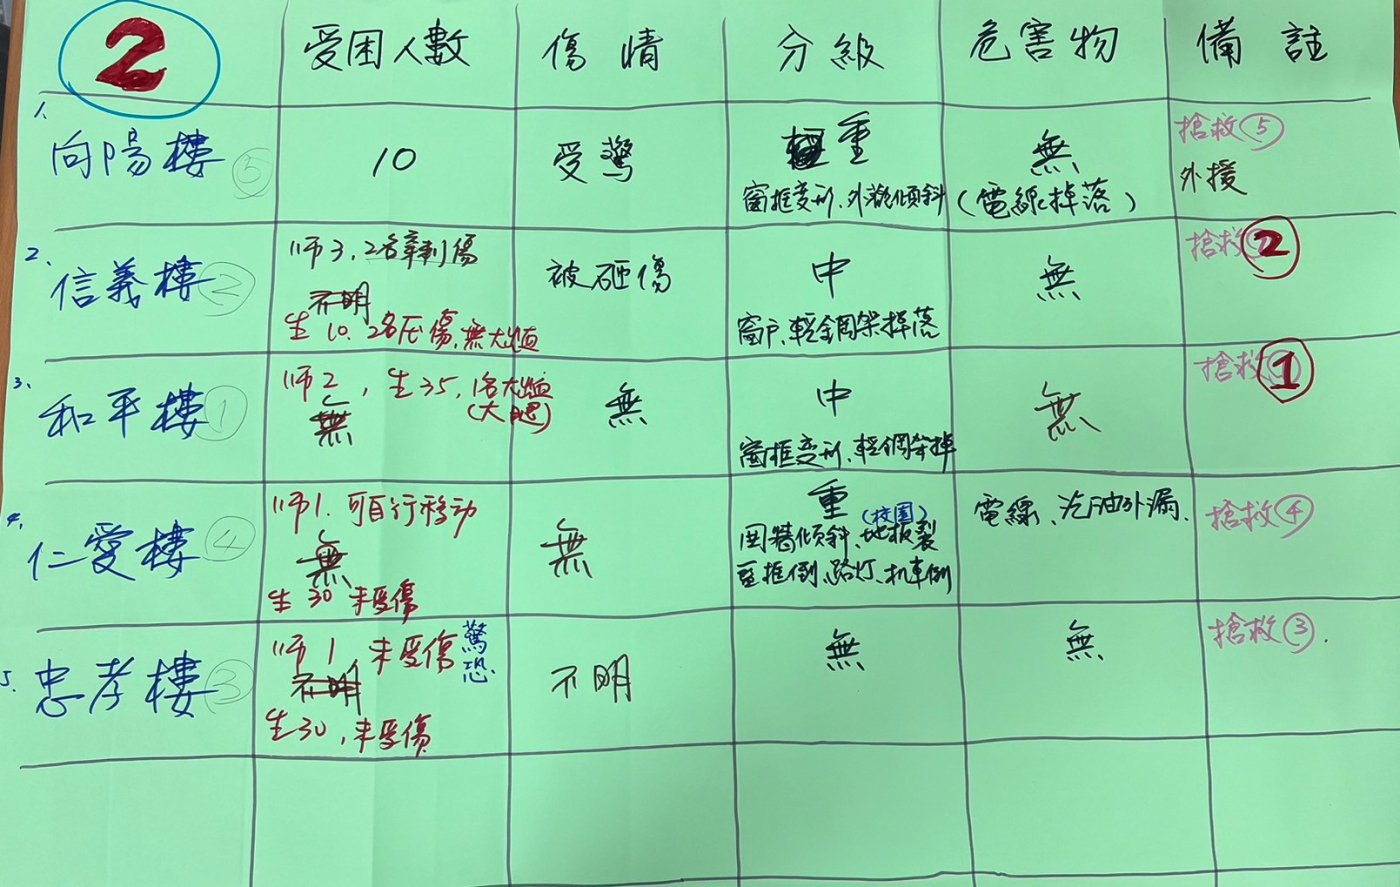 2
受困人數 傷情 分級 危害物 備註
1. 向陽樓 ⑤
10
受驚
重
窗框変形、外牆傾斜
無
(電線掉落)
搶救⑤
外援
2. 信義樓 ②
师3,2名穿刺傷
不明
生10.2名压傷,無大出血
被砸傷
中
窗戶、輕鋼架掉落
無
搶救②
3. 和平樓 ①
师2,生35,1名大出血
(大腿)
無
無
中
窗框变形、輕鋼架掉
無
搶救①
4. 仁愛樓 ④
师1.可自行移动
無
生30 未受傷
無
重
(校園)
圍牆傾斜、地板裂
倒、路灯、机車倒
電線、汽油外漏.
搶救④
5. 忠孝樓 ③
师1,未受傷 驚恐
不明
生30,未受傷
不明
無
無
搶救③.